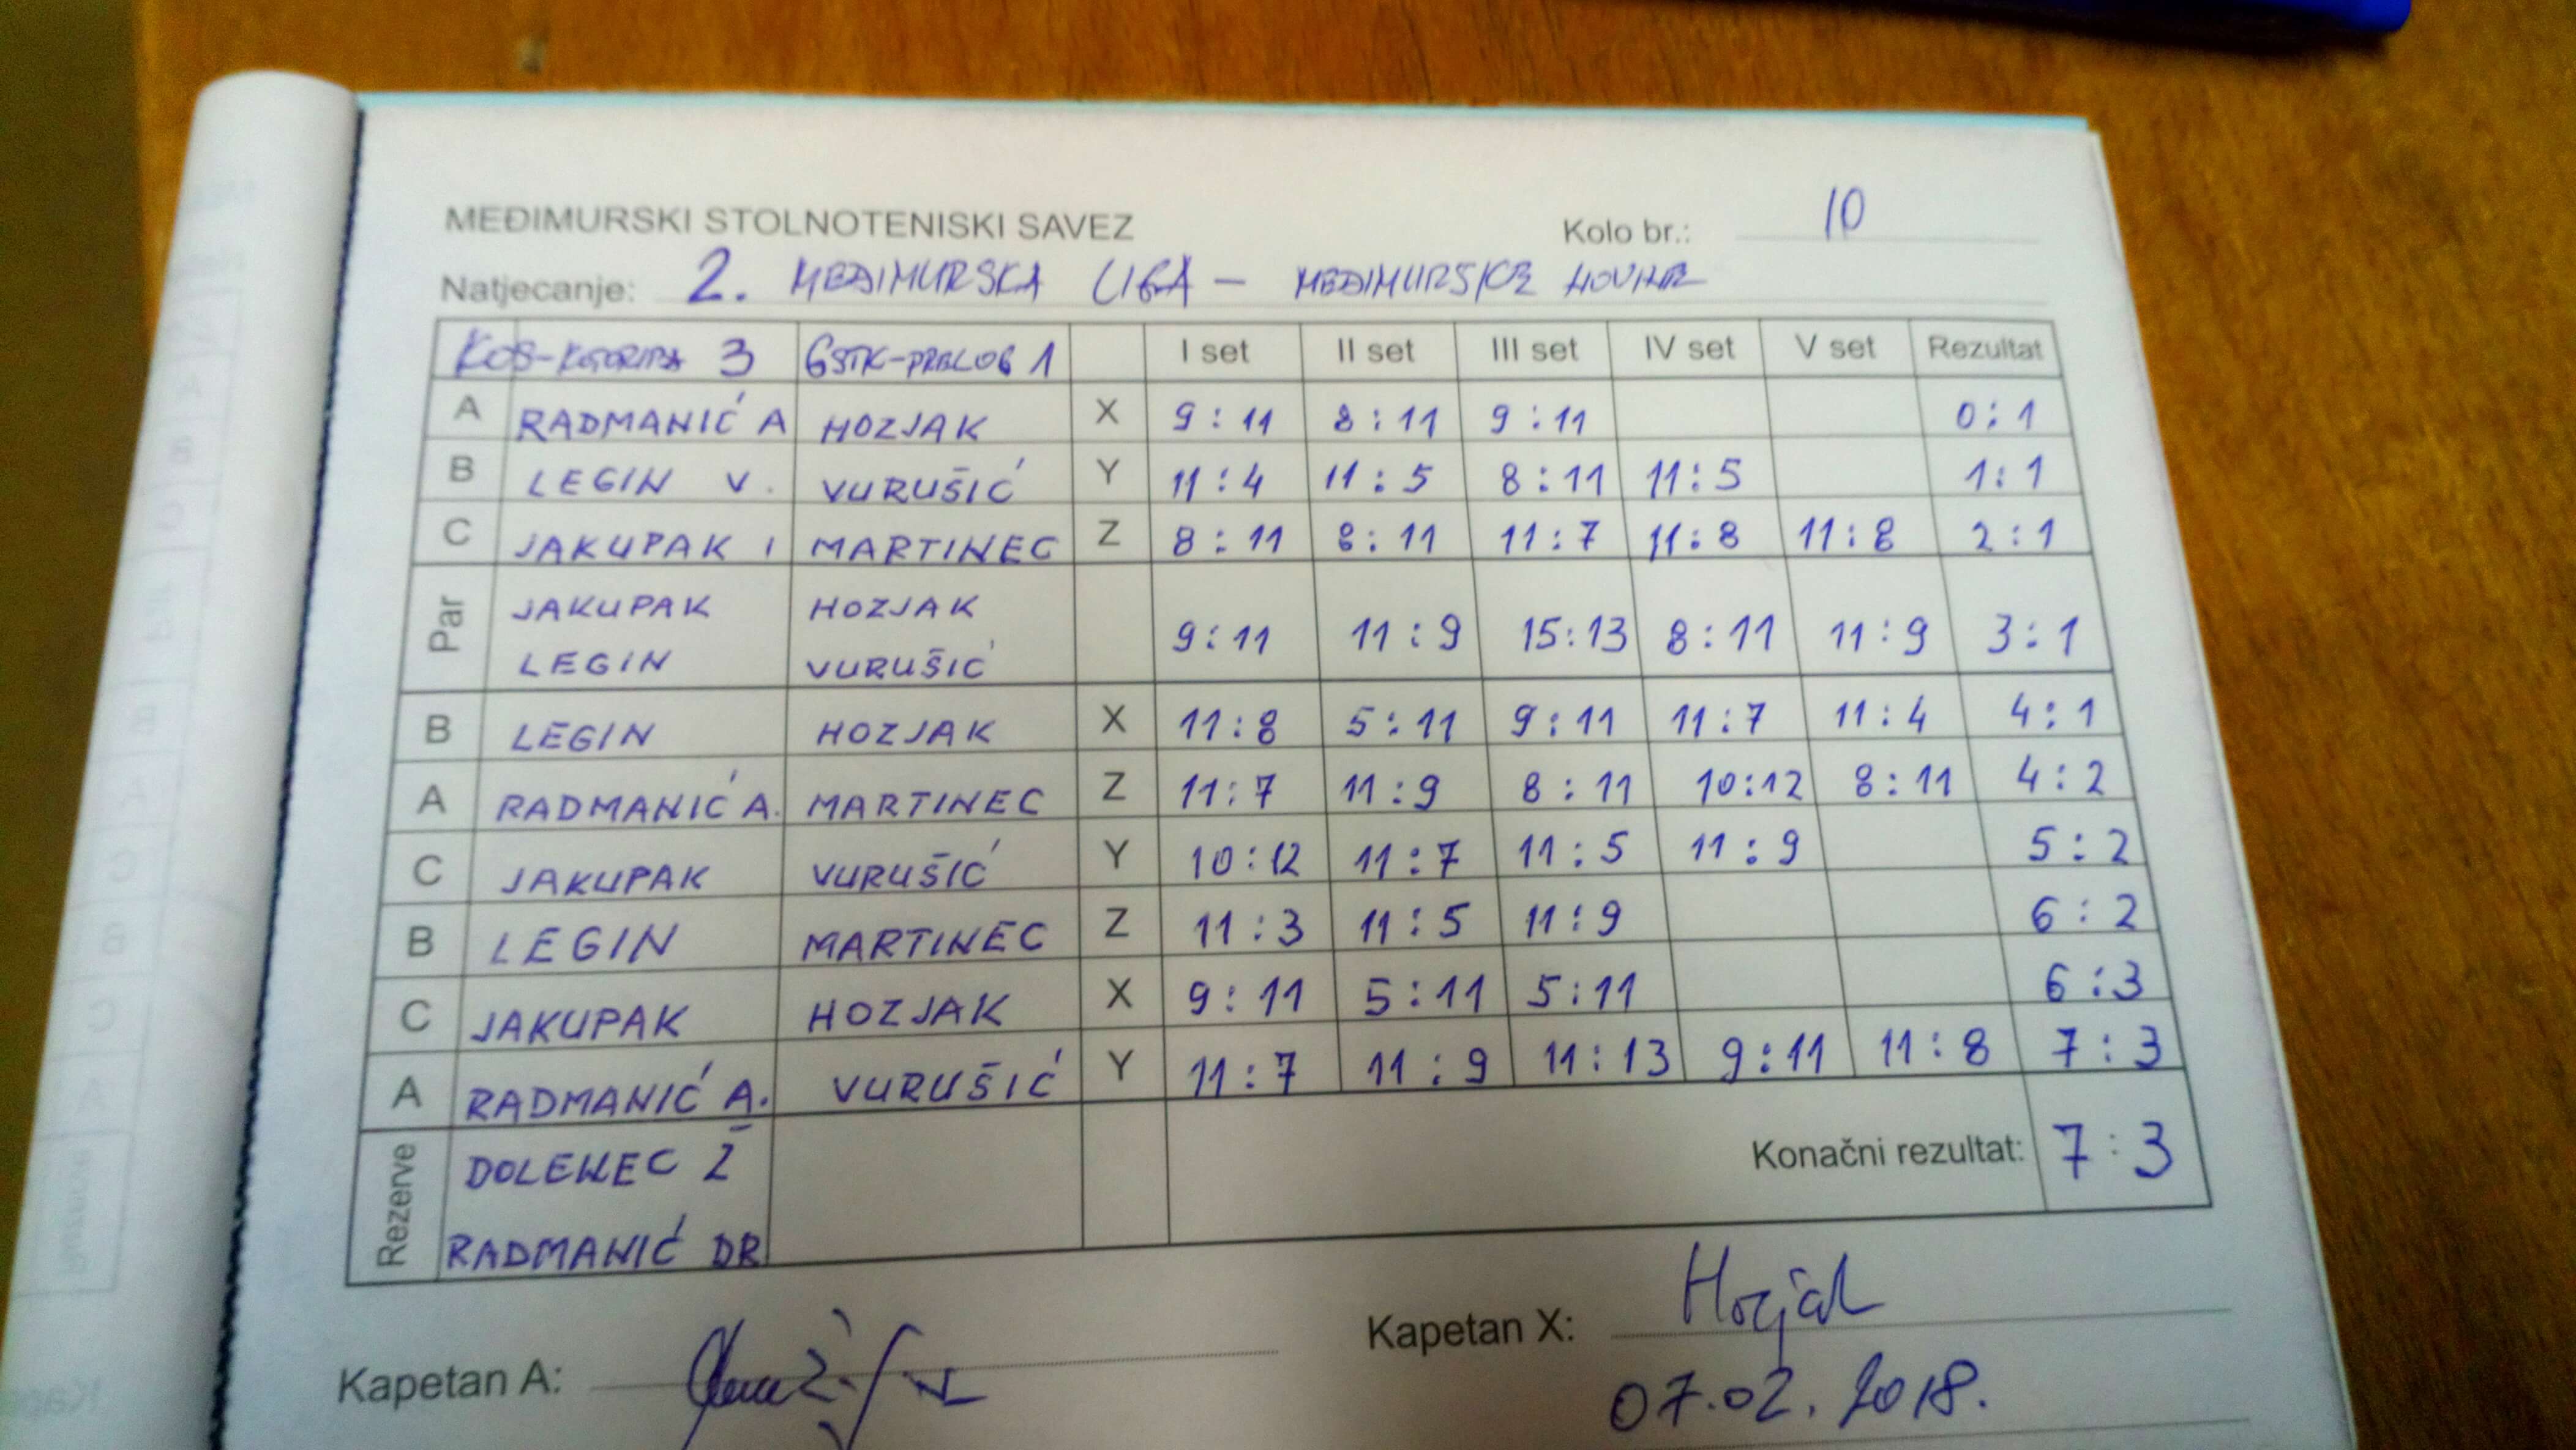 MEĐIMURSKI STOLNOTENISKI SAVEZ Kolo br.: 10
Natjecanje: 2. MEĐIMURSKA LIGA - MEĐIMURSKE NOVINE
3 GSTK-PRELOG 1 I set II set III set IV set V set Rezultat
A RADMANIĆ A HOZJAK X 9:11 8:11 9:11 0:1
B LEGIN V. VURUŠIĆ Y 11:4 11:5 8:11 11:5 1:1
C JAKUPAK I MARTINEC Z 8:11 8:11 11:7 11:8 11:8 2:1
Par JAKUPAK HOZJAK
LEGIN VURUŠIĆ 9:11 11:9 15:13 8:11 11:9 3:1
B LEGIN HOZJAK X 11:8 5:11 9:11 11:7 11:4 4:1
A RADMANIĆ A. MARTINEC Z 11:7 11:9 8:11 10:12 8:11 4:2
C JAKUPAK VURUŠIĆ Y 10:12 11:7 11:5 11:9 5:2
B LEGIN MARTINEC Z 11:3 11:5 11:9 6:2
C JAKUPAK HOZJAK X 9:11 5:11 5:11 6:3
A RADMANIĆ A. VURUŠIĆ Y 11:7 11:9 11:13 9:11 11:8 7:3
Rezerve DOLENEC Ž Konačni rezultat: 7:3
RADMANIĆ DR
Kapetan A: Kapetan X: Hozjak
07.02.2018.